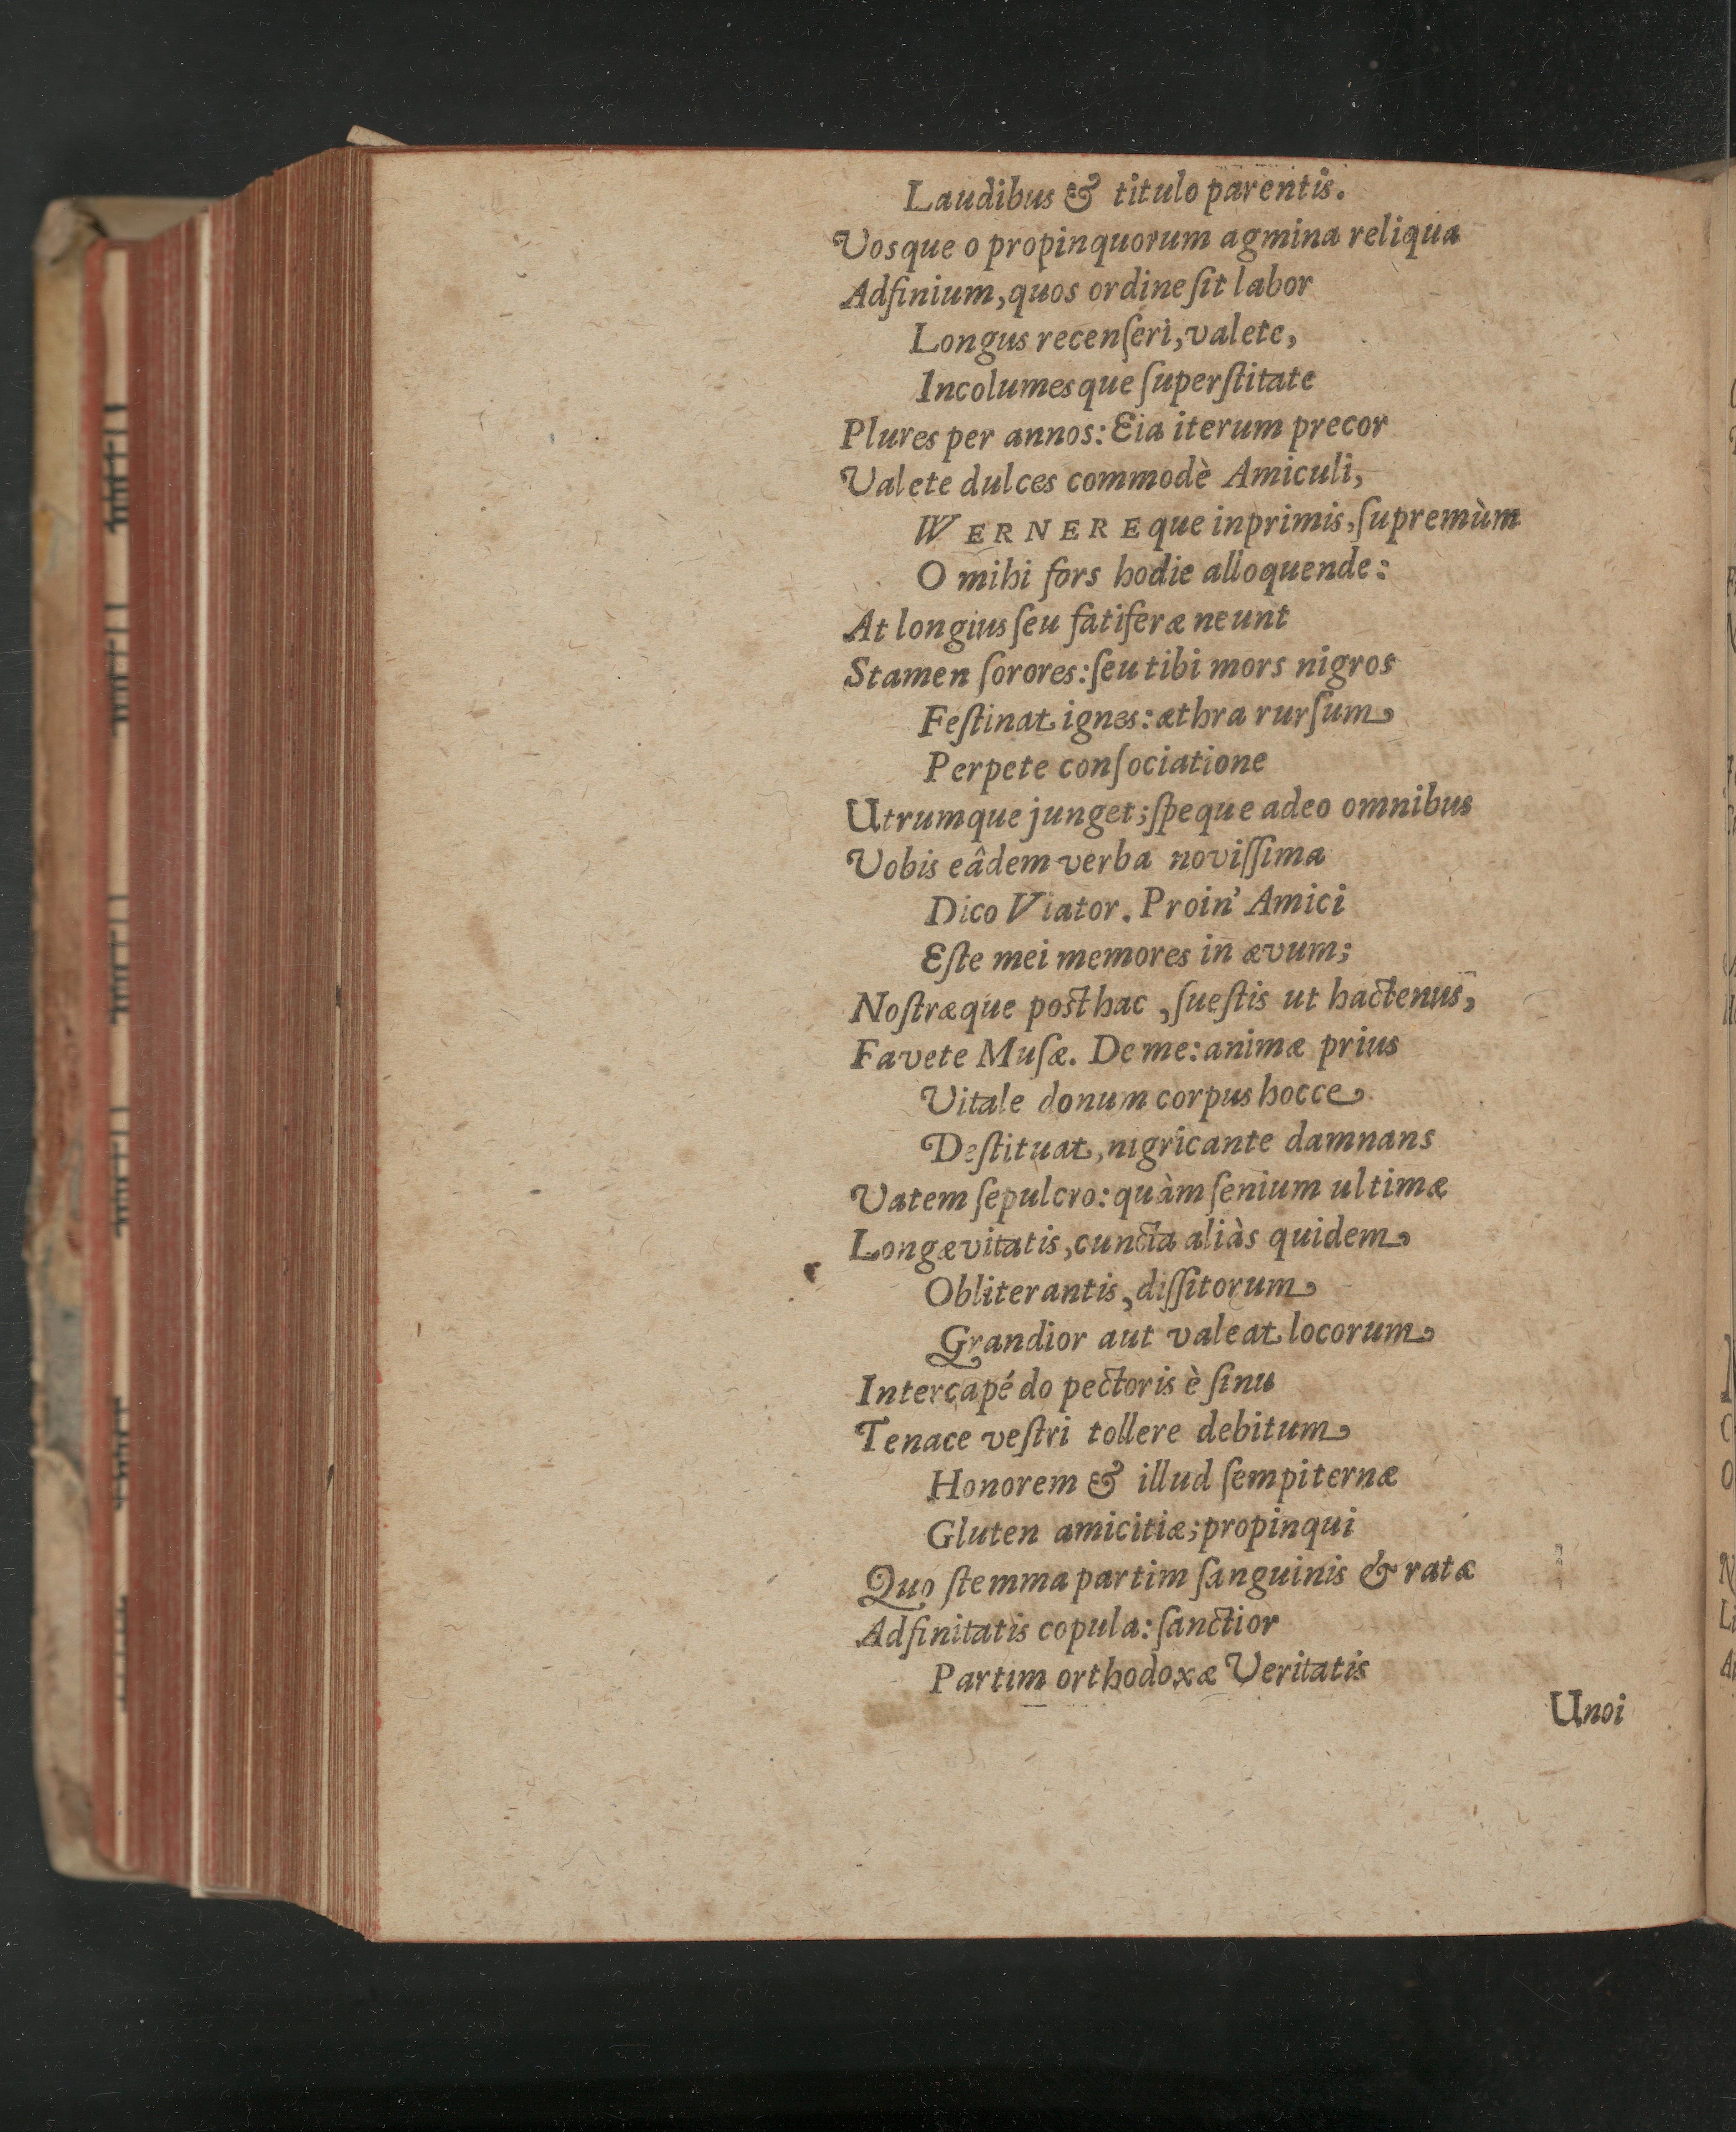 Laudibus & titulo parentis.
Vosque o propinquorum agmina reliqua
Adfinium, quos ordine ſit labor
Longus recenſeri, valete,
Incolumesque ſuperſtitate
Plures per annos: Eia iterum precor
Valete dulces commodè Amiculi,
WERNEREque inprimis, ſupremùm
O mihi fors hodie alloquende:
At longius ſeu fatiferæ neunt
Stamen ſorores: ſeu tibi mors nigros
Feſtinat ignes: æthra rurſum
Perpete conſociatione
Utrumque junget; ſpeque adeo omnibus
Vobis eâdem verba noviſſima
Dico Viator. Proin' Amici
Eſte mei memores in ævum;
Noſtræque posthac, ſueſtis ut hactenus,
Favete Muſæ. De me: animæ prius
Vitale donum corpus hocce
Deſtituat, nigricante damnans
Vatem ſepulcro: quàm ſenium ultimæ
Longævitatis, cuncta aliàs quidem
Obliterantis, diſſitorum
Grandior aut valeat locorum
Intercapédo pectoris è ſinu
Tenace veſtri tollere debitum
Honorem & illud ſempiternæ
Gluten amicitiæ; propinqui
Quo ſtemma partim ſanguinis & ratæ
Adfinitatis copula: ſanctior
Partim orthodoxæ Veritatis
Unoi